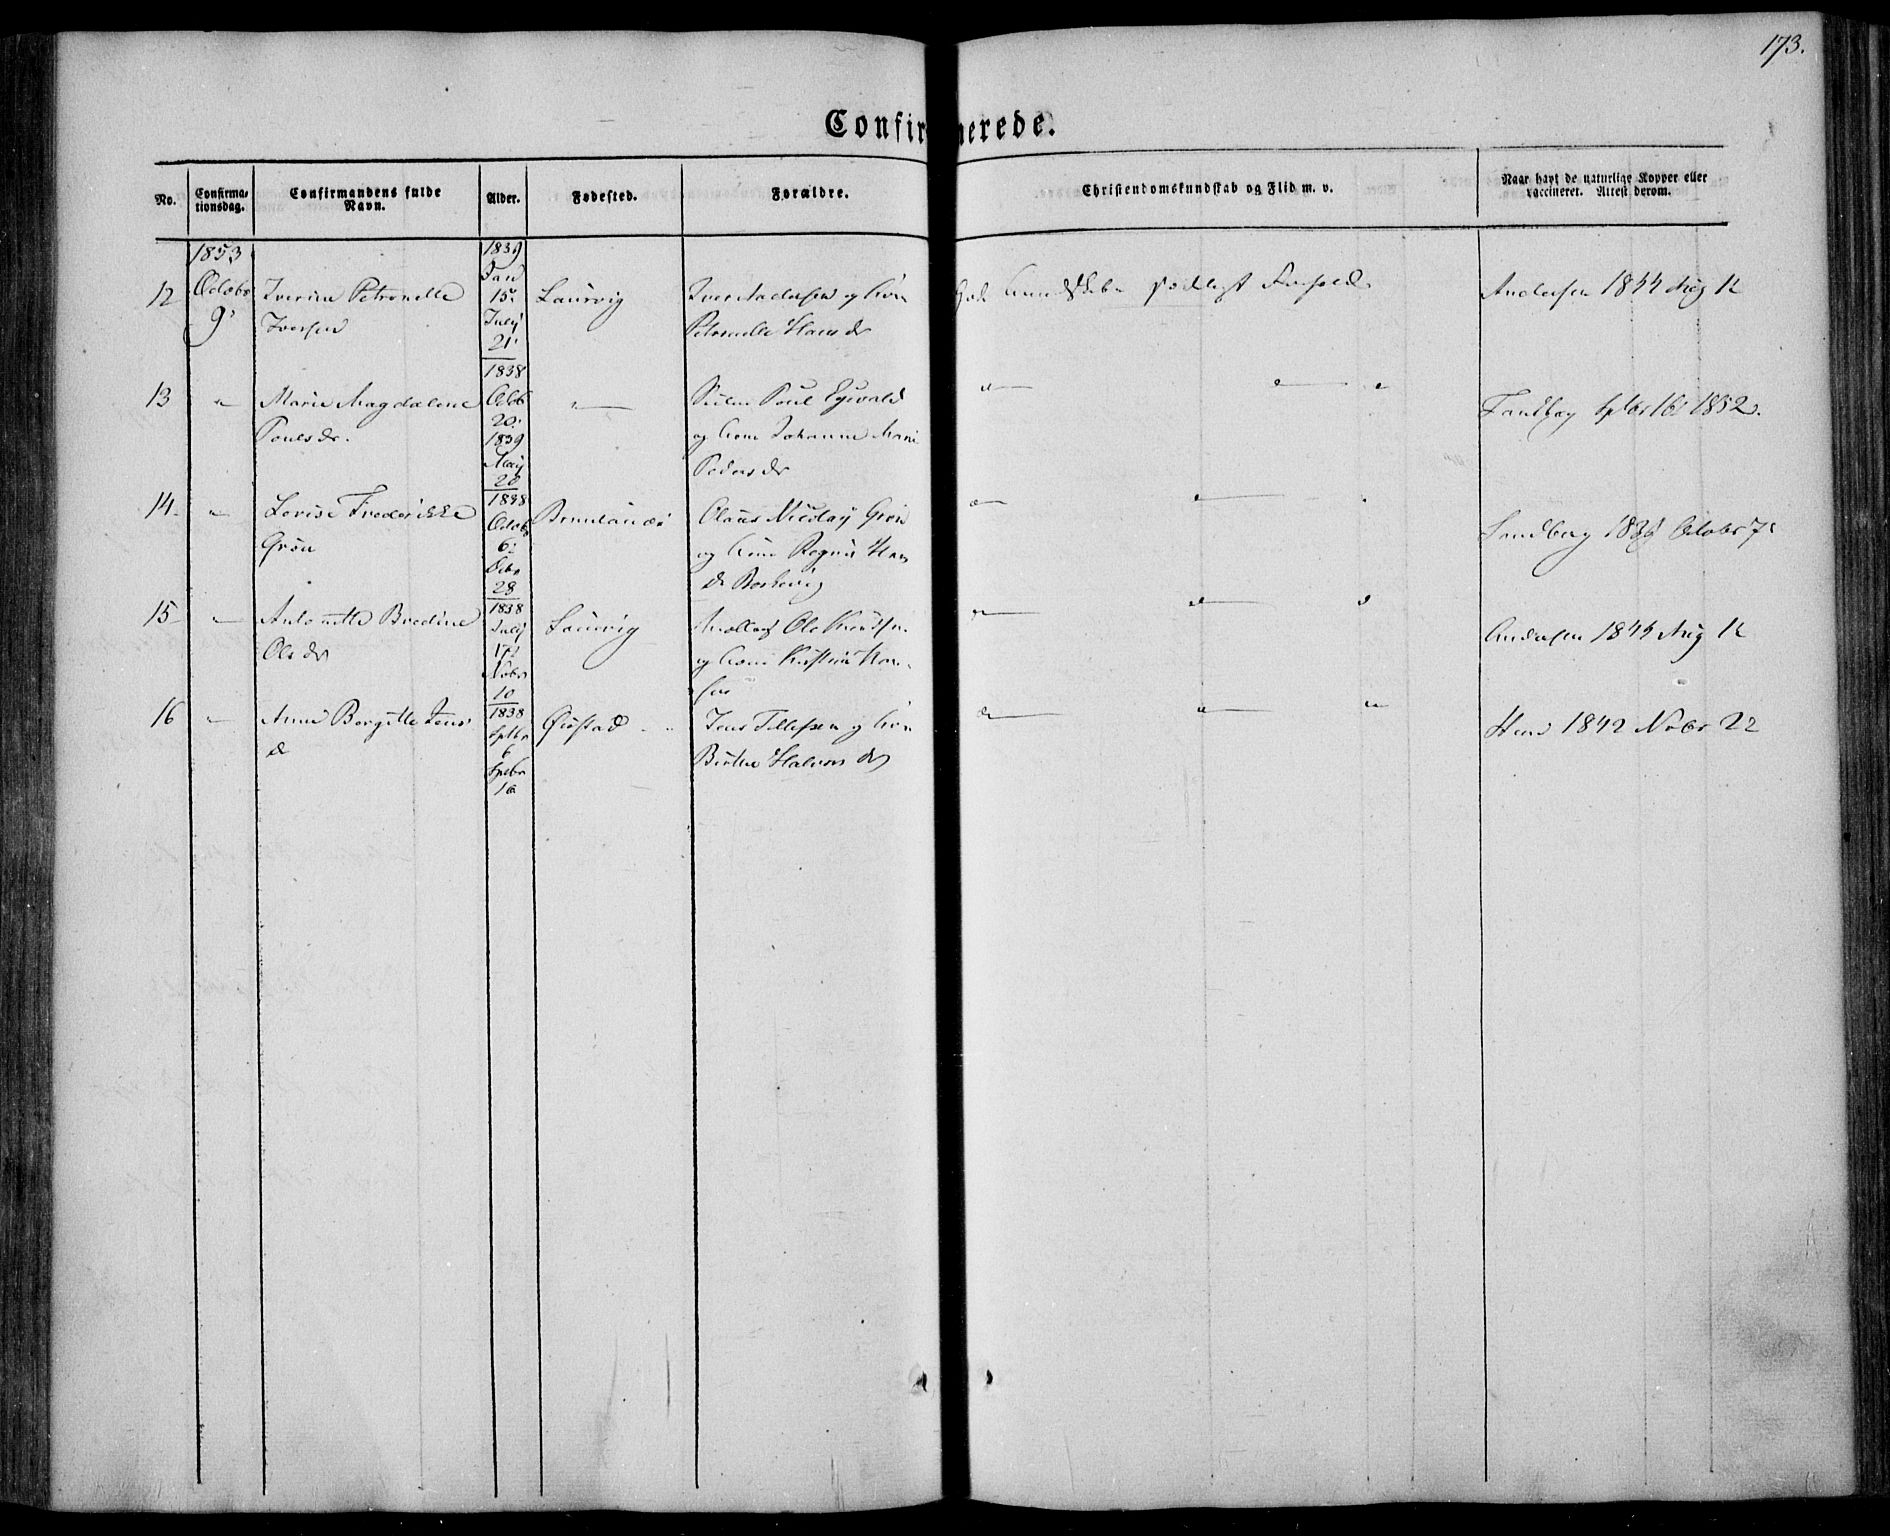 173.
Confirmerede.
No.
Confirma-
tionsdag.
Confirmandens fulde
Navn.
Alder.
Fødested.
Forældre.
Christendomskundskab og Flid m. v.
Naar havt de naturlige Kopper eller
vaccineret. Attest derom.
1853
12 Octobr
9
Iverine Petronelle
Iversen
1839
Jan
15
July
21
Laurvig
Iver Andersen og Kone
Petronelle Hans dr
Gode Kundskaber sædeligt Forhold
Andersen 1844 Aug 12
13 "
Marie Magdalene
Pouls dr.
1838
Octb
20
1839
May
20
"
Poul Eywald
og Kone Johanne Marie
Peders dr
" " "
Sandberg Septbr 16 1852.
14 "
Lovise Frederikke
Grøn
1838
Octobr
6
Octbr
28
Brunlanæs
Claus Nicolay Grøn
og Kone Regine Hans
dr
" "
Sandberg Octobr 7
15 "
Antonette Bredine
Ols dr
1838
July
17
Nobr
10
Laurvig
Ole Knudsen
og Kone Kirstine Han-
sen
" " "
Andersen 1844 Aug 12
16 "
Anne Bergitte Jens
d
1838
Septbr
6
Septbr
16
Jens Tillefsen og Kone
Birthe Halvors dr
" " "
1842 Nobr 22